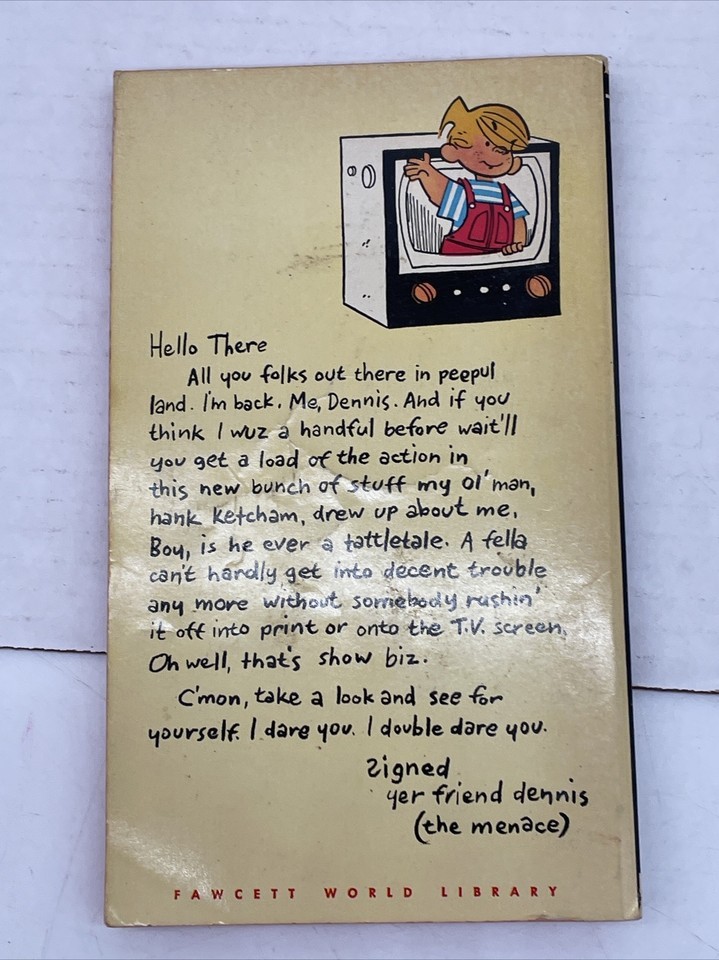 Hello There
All you folks out there in peepul
land. I'm back. Me, Dennis. And if you
think I wuz a handful before wait'll
you get a load of the action in
this new bunch of stuff my ol' man,
hank Ketcham, drew up about me.
Boy, is he ever a tattletale. A fella
can't hardly get into decent trouble
any more without somebody rushin'
it off into print or onto the T.V. screen.
Oh well, that's show biz.
C'mon, take a look and see for
yourself. I dare you. I double dare you.
Signed
yer friend dennis
(the menace)
FAWCETT WORLD LIBRARY